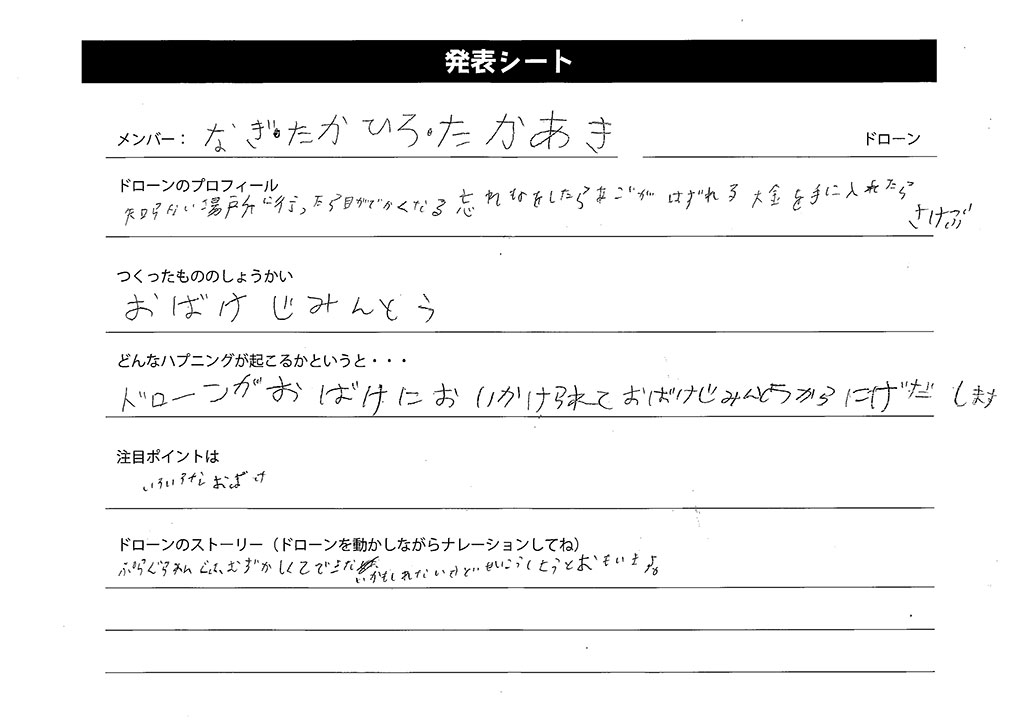 発表シート
メンバー： なぎ・たかひろ・たかあき ドローン
ドローンのプロフィール
知らない場所に行ったら目がでかくなる 忘れものをしたらあごがはずれる 大金を手に入れたら
さけぶ
つくったもののしょうかい
おばけじみんとう
どんなハプニングが起こるかというと・・・
ドローンがおばけにおいかけられておばけじみんとうからにげだします
注目ポイントは
いろいろなおばけ
ドローンのストーリー（ドローンを動かしながらナレーションしてね）
ぷろぐらみんぐは、むずかしくてできないかもしれないけどせいこうしようとおもいます。